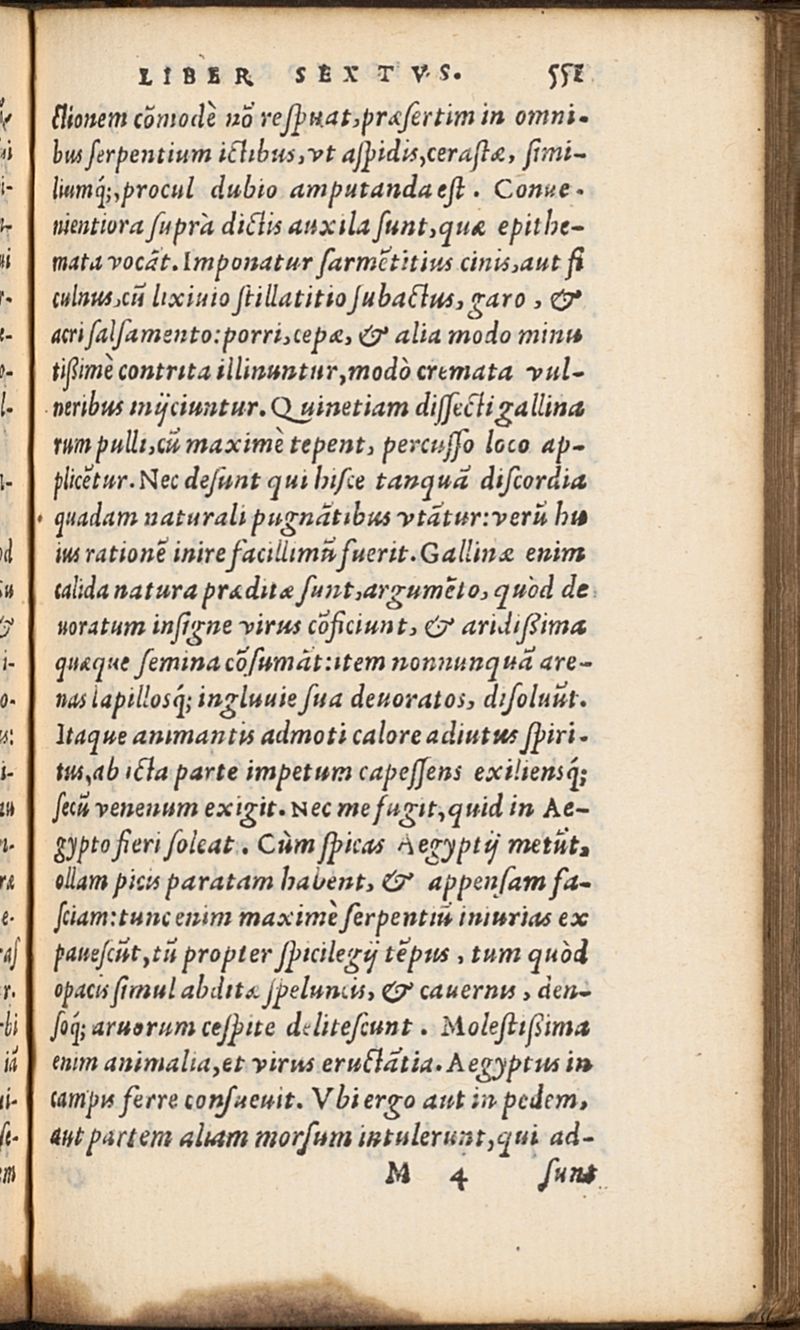 LIBER SEXTVS. 551
ctionem cōmodè nō reſpuat, præſertim in omni-
bus ſerpentium ictibus, vt aſpidis, ceraſtæ, ſimi-
liumq́;, procul dubio amputanda eſt. Conue-
nientiora ſuprà dictis auxila ſunt, quæ epithe-
mata vocāt. Imponatur ſarmētitius cinis, aut fi
culnus, cū lixiuio ſtillatitio ſubactus, garo, &
acri ſalſamento: porri, cepæ, & alia modo minu
tißimè contrita illinuntur, modò cremata vul-
neribus inijciuntur. Quinetiam diſſecti gallina
rum pulli, cū maximè tepent, percuſſo loco ap-
plicētur. Nec deſunt qui hiſce tanquā diſcordia
quadam naturali pugnātibus vtātur: verū hu
ius rationē inire facillimū fuerit. Gallinæ enim
calida natura præditæ ſunt, argumēto, quòd de
uoratum inſigne virus cōficiunt, & aridißima
quæque ſemina cōſumāt: item nonnunquā are-
nas lapilloſq́; ingluuie ſua deuoratos, diſoluūt.
Itaque animantis admoti calore adiutus ſpiri-
tus, ab icta parte impetum capeſſens exiliensq́;
ſecū venenum exigit. Nec me fugit, quid in Ae-
gypto fieri ſoleat. Cùm ſpicas Aegyptij metūt,
ollam picis paratam habent, & appenſam fa-
ſciam: tunc enim maximè ſerpentiū iniurias ex
paueſcūt, tū propter ſpicilegij tēpus, tum quòd
opacis ſimul abditæ ſpeluncis, & cauernis, den-
ſoq́; aruorum ceſpite deliteſcunt. Moleſtißima
enim animalia, et virus eructātia. Aegyptus in
campis ferre conſueuit. Vbi ergo aut in pedem,
aut partem aliam morſum intulerunt, qui ad-
M 4 ſunt